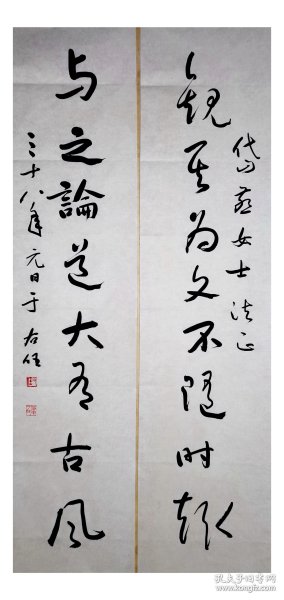 觀其為文不隨時趣
女士法正
与之論道大有古風
三十八年元日于右任
孔夫子旧书网
www.kongfz.com